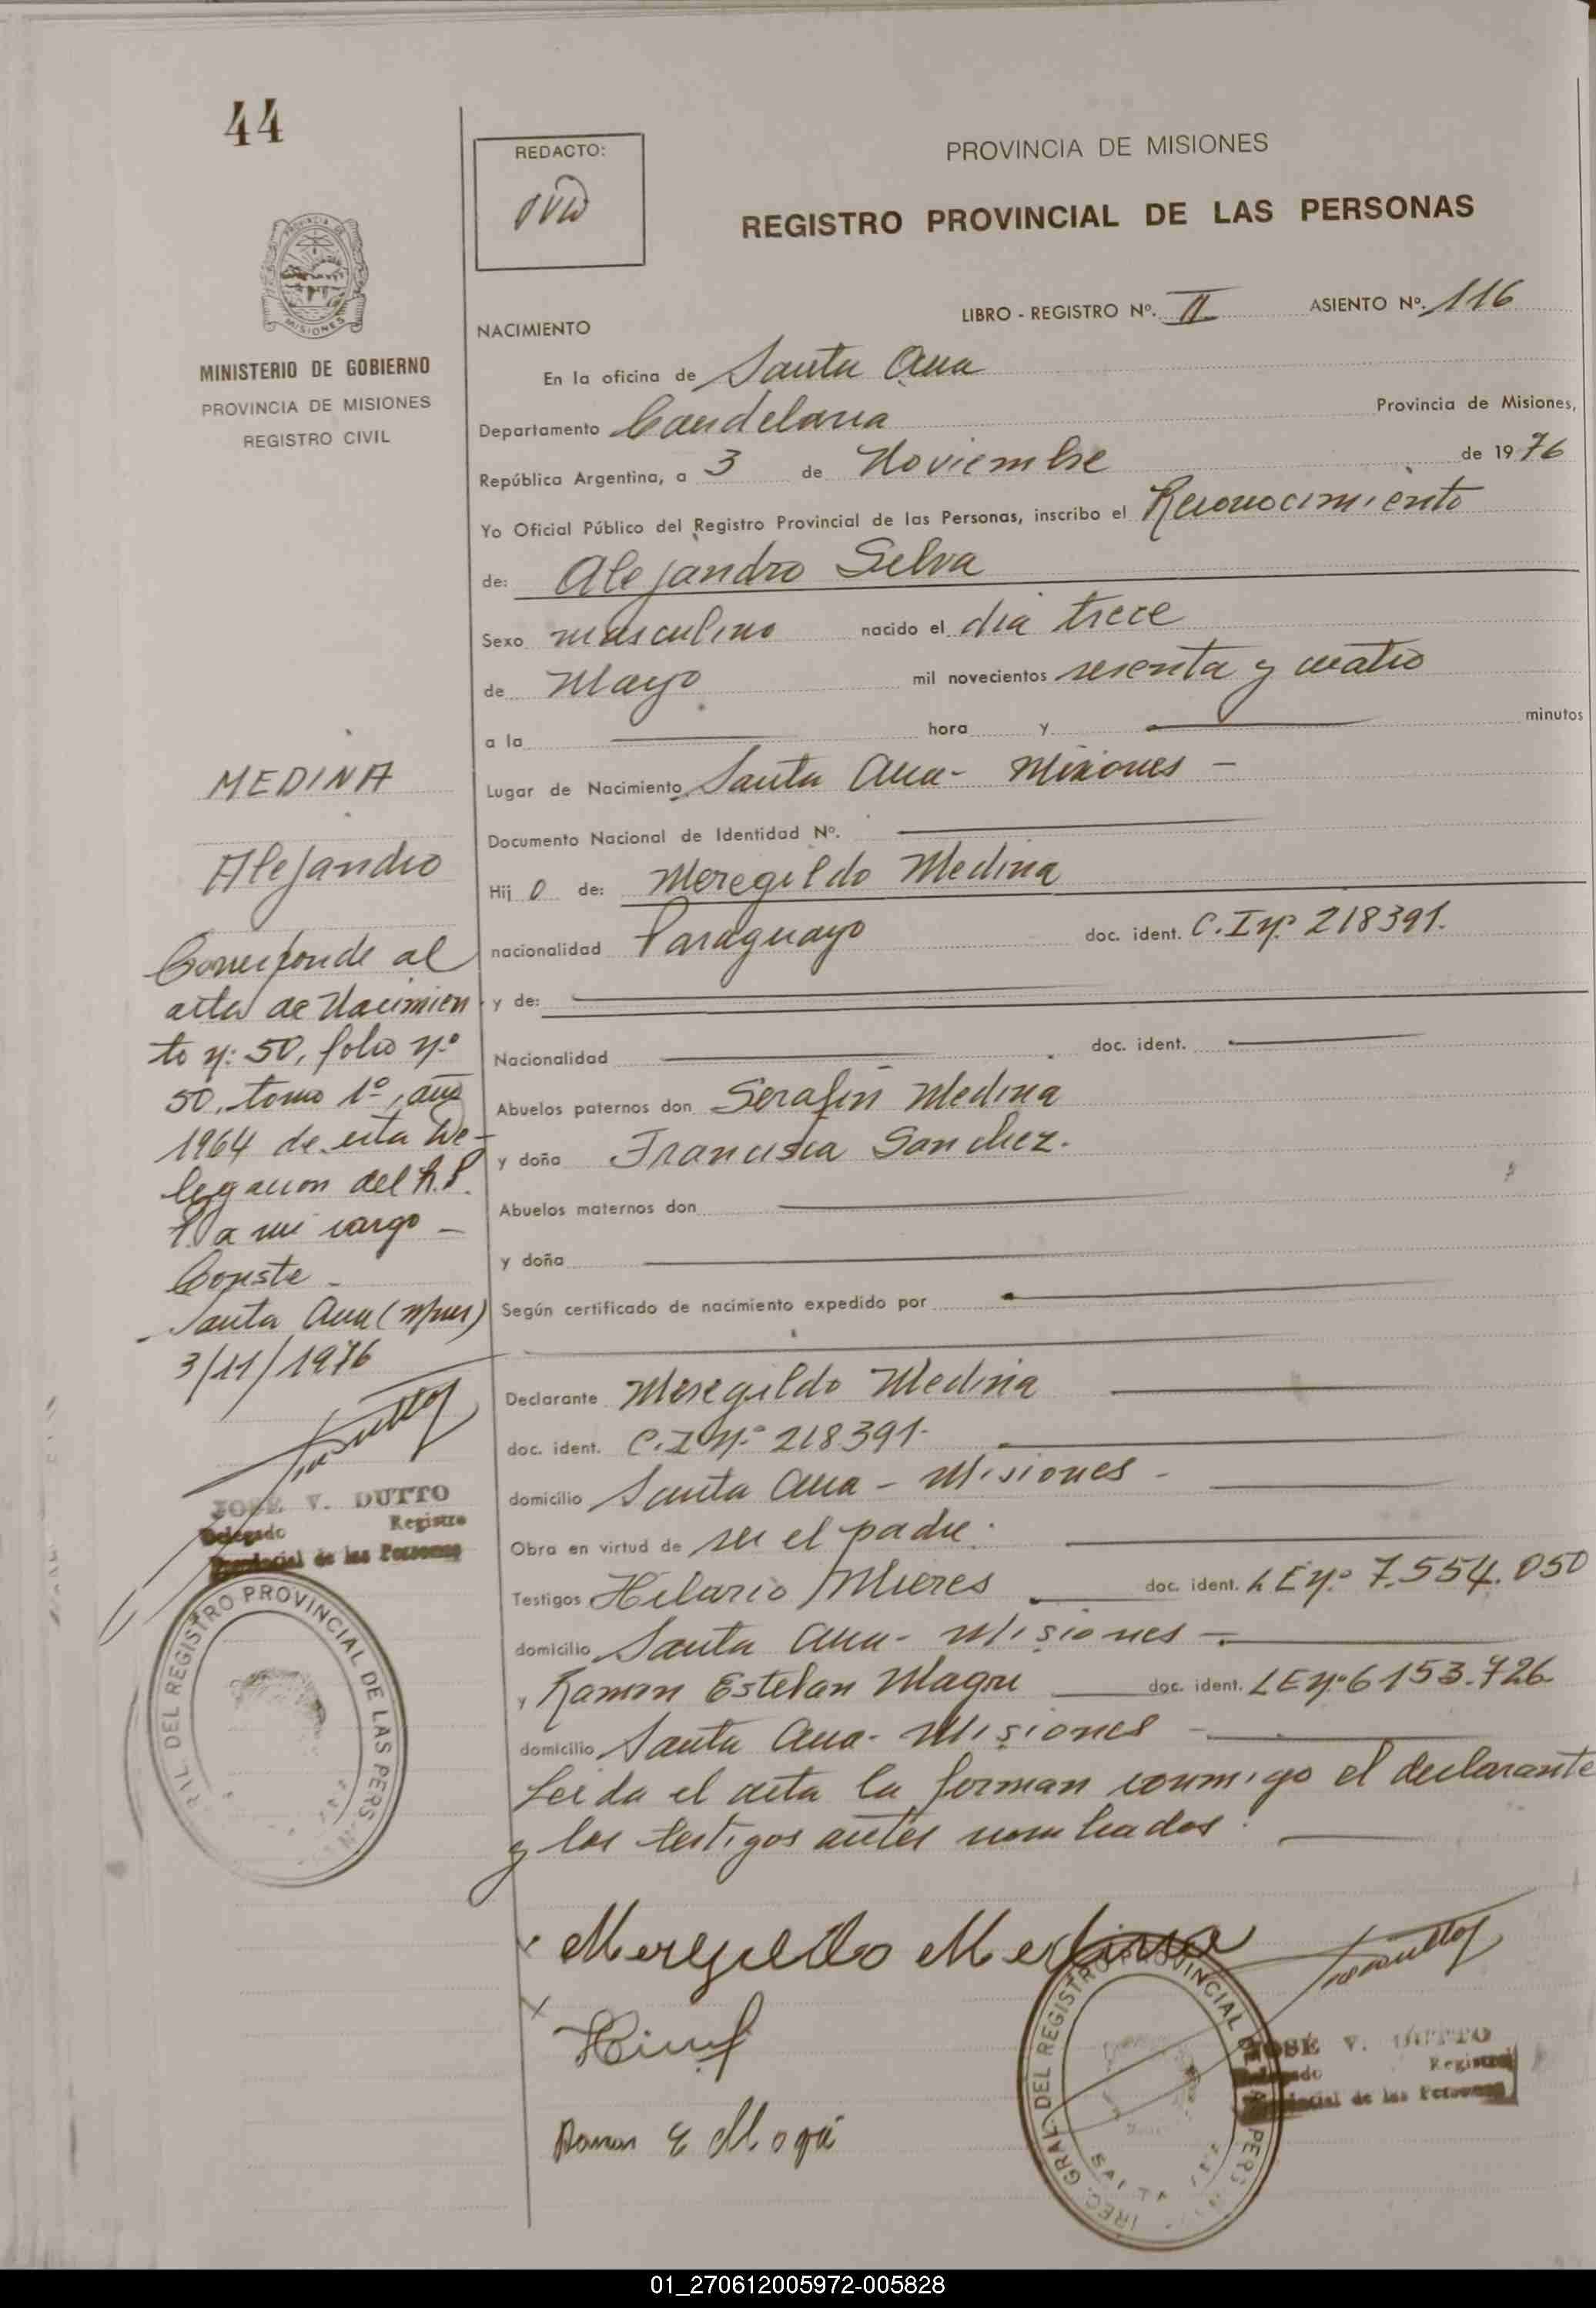 44
REDACTO:
PROVINCIA DE MISIONES
REGISTRO PROVINCIAL DE LAS PERSONAS
LIBRO - REGISTRO Nº. II ASIENTO Nº. 116
NACIMIENTO
MINISTERIO DE GOBIERNO
PROVINCIA DE MISIONES
REGISTRO CIVIL
En la oficina de Santa Ana
Departamento Candelaria Provincia de Misiones,
República Argentina, a 3 de Noviembre de 1976
Yo Oficial Público del Registro Provincial de las Personas, inscribo el Reconocimiento
de: Alejandro Selva
Sexo masculino nacido el dia trece
de Mayo mil novecientos sesenta y cuatro
a la hora y minutos
Lugar de Nacimiento Santa Ana - Misiones -
Documento Nacional de Identidad Nº.
Hij o de: Meregildo Medina
nacionalidad Paraguayo doc. ident. C.I nº 218391.
y de:
Nacionalidad doc. ident.
Abuelos paternos don Serafin Medina
y doña Francisca Sanchez.
Abuelos maternos don
y doña
Según certificado de nacimiento expedido por
Declarante Meregildo Medina
doc. ident. C.I nº 218391.
domicilio Santa Ana - Misiones -
Obra en virtud de ser el padre.
Testigos Hilario Mieres doc. ident. LE nº 7.554.050
domicilio Santa Ana - Misiones -
y Ramon Esteban doc. ident. LE nº 6153.726
domicilio Santa Ana - Misiones -
Leida el acta la forman conmigo el declarante
y los testigos antes nombrados.
MEDINA
Alejandro
Corresponde al
acta de Nacimien
to nº 50, folio nº
50, tomo 1º, año
1964 de esta De-
legacion del R.P.
P. a mi cargo -
Conste -
Santa Ana (Mnes)
3/11/1976
JOSE V. DUTTO
Delegado Registro
Provincial de las Personas
DEL REGISTRO PROVINCIAL DE LAS PERS
Meregildo Medina
JOSÉ V. DUTTO
Delegado Registro
Provincial de las Personas
GRAL. DEL REGISTRO PROVINCIAL
01_270612005972-005828